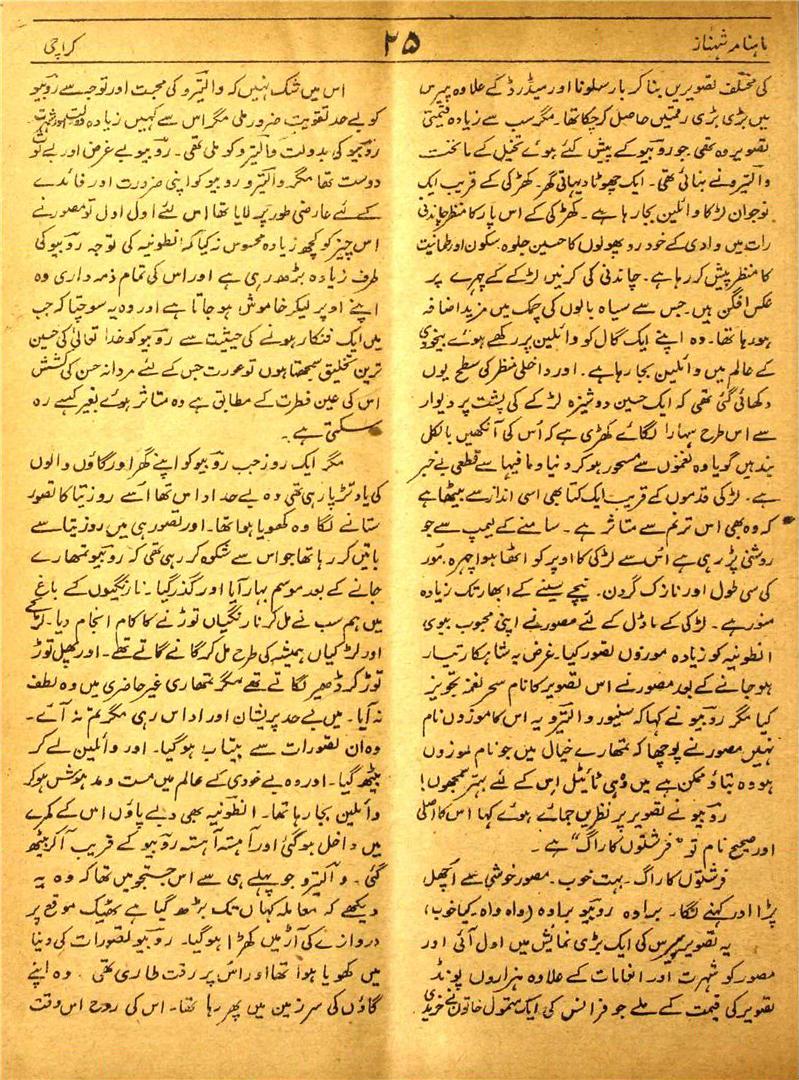 ماہنامہ شہناز
۲۵
کراچی
کی مختلف تصویریں بنا کر بارسلونا اور میڈرڈ کے علاوہ پیرس
میں بڑی بڑی رقمیں حاصل کر چکا تھا۔ مگر سب سے زیادہ قیمتی
تصویر وہ تھی جو روبیو کے پیش کئے ہوئے تخیل کے ماتحت
والیرو نے بنائی تھی۔ ایک چھوٹا دیہاتی گھر۔ کھڑکی کے قریب ایک
نوجوان لڑکا وائلین بجا رہا ہے۔ کھڑکی کے اس پار کا منظر چاندنی
رات میں وادی کے خود رو پھولوں کا حسین جلوہ سکون اور طمانیت
کا منظر پیش کر رہا ہے۔ چاندنی کی کرنیں لڑکے کے چہرے پر
عکس افگن ہیں۔ جس سے سیاہ بالوں کی چمک میں مزید اضافہ
ہو رہا تھا۔ وہ اپنے ایک گال کو وائلین پر رکھے ہوئے بیخودی
کے عالم میں وائلین بجا رہا ہے۔ اور داخلی منظر کی سطح یوں
دکھائی گئی تھی کہ ایک حسین دوشیزہ لڑکے کی پشت پر دیوار
سے اس طرح سہارا لگائے کھڑی ہے کہ اُس کی آنکھیں بالکل
بند ہیں گویا وہ نغموں سے مسحور ہو کر دنیا و مافیہا سے قطعی بے خبر
ہے۔ لڑکی قدموں کے قریب ایک کتا بھی اسی انداز سے بیٹھا ہے
کہ وہ بھی اس ترنم سے متاثر ہے۔ سامنے کے لیمپ سے جو
روشنی پڑ رہی ہے اُس سے لڑکی کا اوپر کو اٹھا ہوا چہرہ۔ مور
کی سی طول اور نازک گردن۔ نیچے سینے کے ابھار تک زیادہ
منور ہے۔ لڑکی کے ماڈل کے لئے مصور نے اپنی محبوب بیوی
انطونیہ کو زیادہ موزوں تصور کیا۔ غرض یہ شاہکار تیار
ہو جانے کے بعد مصور نے اس تصویر کا نام سحر نغمہ تجویز
کیا مگر روبیو نے کہا کہ سنیور والیرو یہ اس کا موزوں نام
نہیں مصور نے پوچھا کہ تمھارے خیال میں جو نام موزوں
ہو وہ بتاؤ ممکن ہے میں وہی ٹائیٹل اس کے لئے بہتر سمجھوں!
روبیو نے تصویر پر نظریں جمائے ہوئے کہا اس کا اصلی
اور صحیح نام تو "فرشتوں کا راگ" ہے۔
فرشتوں کا راگ۔ بہت خوب۔ مصور خوشی سے اچھل
پڑا اور کہنے لگا۔ براوہ روبیو براوہ (واہ واہ۔ کیا خوب)
یہ تصویر پیرس کی ایک بڑی نمائش میں اول آئی اور
مصور کو شہرت اور انعامات کے علاوہ ہزاروں پونڈ
تصویر کی قیمت کے ملے جو فرانس کی ایک متمول خاتون نے خریدی
اس میں شک نہیں کہ والیرو کی محبت اور توجہ سے روبیو
کو بے حد تقویت ضرور ملی مگر اس سے کہیں زیادہ دولت اور شہرت
روبیو کی بدولت والیرو کو ملی تھی۔ روبیو بے غرض اور بے لوث
دوست تھا مگر والیرو روبیو کو اپنی ضرورت اور فائدے
کے لئے عارضی طور پر لایا تھا اس لئے اول اول تو مصور نے
اس چیز کو کچھ زیادہ محسوس نہ کیا کہ انطونیہ کی توجہ روبیو کی
طرف زیادہ بڑھ رہی ہے اور اس کی تمام ذمہ داری وہ
اپنے اوپر لیکر خاموش ہو جاتا ہے اور وہ یہ سوچتا کہ جب
میں ایک فنکار ہونے کی حیثیت سے روبیو کو خدا تعالیٰ کی حسین
ترین تخلیق سمجھتا ہوں تو عورت جس کے لئے مردانہ حسن کی کشش
اس کی عین فطرت کے مطابق ہے وہ متاثر ہوئے بغیر کیسے رہ
سکتی ہے۔
مگر ایک روز جب روبیو کو اپنے گھر اور گاؤں والوں
کی یاد تڑپا رہی تھی وہ بے حد اداس تھا اسے روزیتا کا تصور
ستانے لگا وہ کھویا ہوا تھا۔ اور تصور ہی میں روزیتا سے
باتیں کر رہا تھا جو اس سے شکوہ کر رہی تھی کہ روبیو تمھارے
جانے کے بعد موسم بہار آیا اور گذر گیا۔ نارنگیوں کے باغیچے
میں ہم سب نے مل کر نارنگیاں توڑنے کا کام انجام دیا۔ لڑکے
اور لڑکیاں ہمیشہ کی طرح مل کر گانے گاتے تھے۔ اور پھل توڑ
توڑ کر ڈھیر لگاتے تھے مگر تمھاری غیر حاضری میں وہ لطف
نہ آیا۔ میں بے حد پریشان اور اداس رہی مگر تم نہ آئے۔
وہ ان تصورات سے بیتاب ہو گیا۔ اور وائلین لے کر
بیٹھ گیا۔ اور وہ بے خودی کے عالم میں مست و مدہوش ہو کر
وائلین بجا رہا تھا۔ انطونیہ بھی دبے پاؤں اس کے کمرے
میں داخل ہو گئی اور آہستہ آہستہ روبیو کے قریب آ کر بیٹھ
گئی۔ والیرو جو پہلے ہی سے اس جستجو میں تھا کہ وہ یہ
دیکھے کہ معاملہ کہاں تک بڑھ گیا ہے ٹھیک موقع پر
دروازے کی آڑ میں کھڑا ہو گیا۔ روبیو تصورات کی دنیا
میں کھویا ہوا تھا اور اُس پر رقت طاری تھی۔ وہ اپنے
گاؤں کی سرزمین میں پھر رہا تھا۔ اس کی روح اس وقت